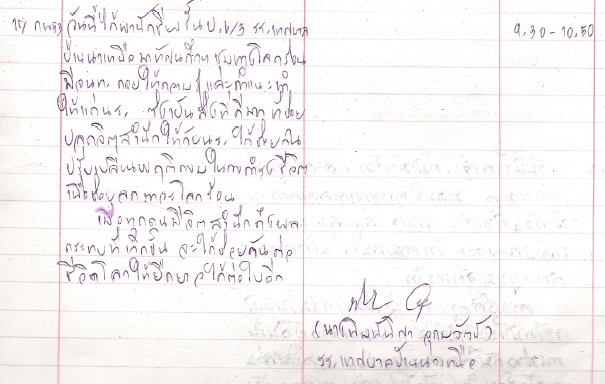 15/ กพ 53 วันนี้ได้พานักเรียนชั้น ป.6/3 รร.เทศบาล 9.30-10.50
บ้านนาเหนือ มาทัศนศึกษาชุมทางโลกร้อน
มีจนท. คอยให้ความรู้และคำแนะนำ
ให้แก่นร. ซึ่งเป็นสิ่งที่ดีมาก ช่วย
ปลุกจิตสำนึกให้กับนร. ให้ช่วยกัน
ปรับเปลี่ยนพฤติกรรมในการดำรงชีวิต
เพื่อช่วยลดภาวะโลกร้อน
เพื่อทุกคนมีจิตสำนึกถึงผล
กระทบที่เกิดขึ้น จะได้ช่วยกันต่อ
ชีวิตโลกให้ยืดยาวได้ต่อไปอีก
รร.เทศบาลบ้านนาเหนือ